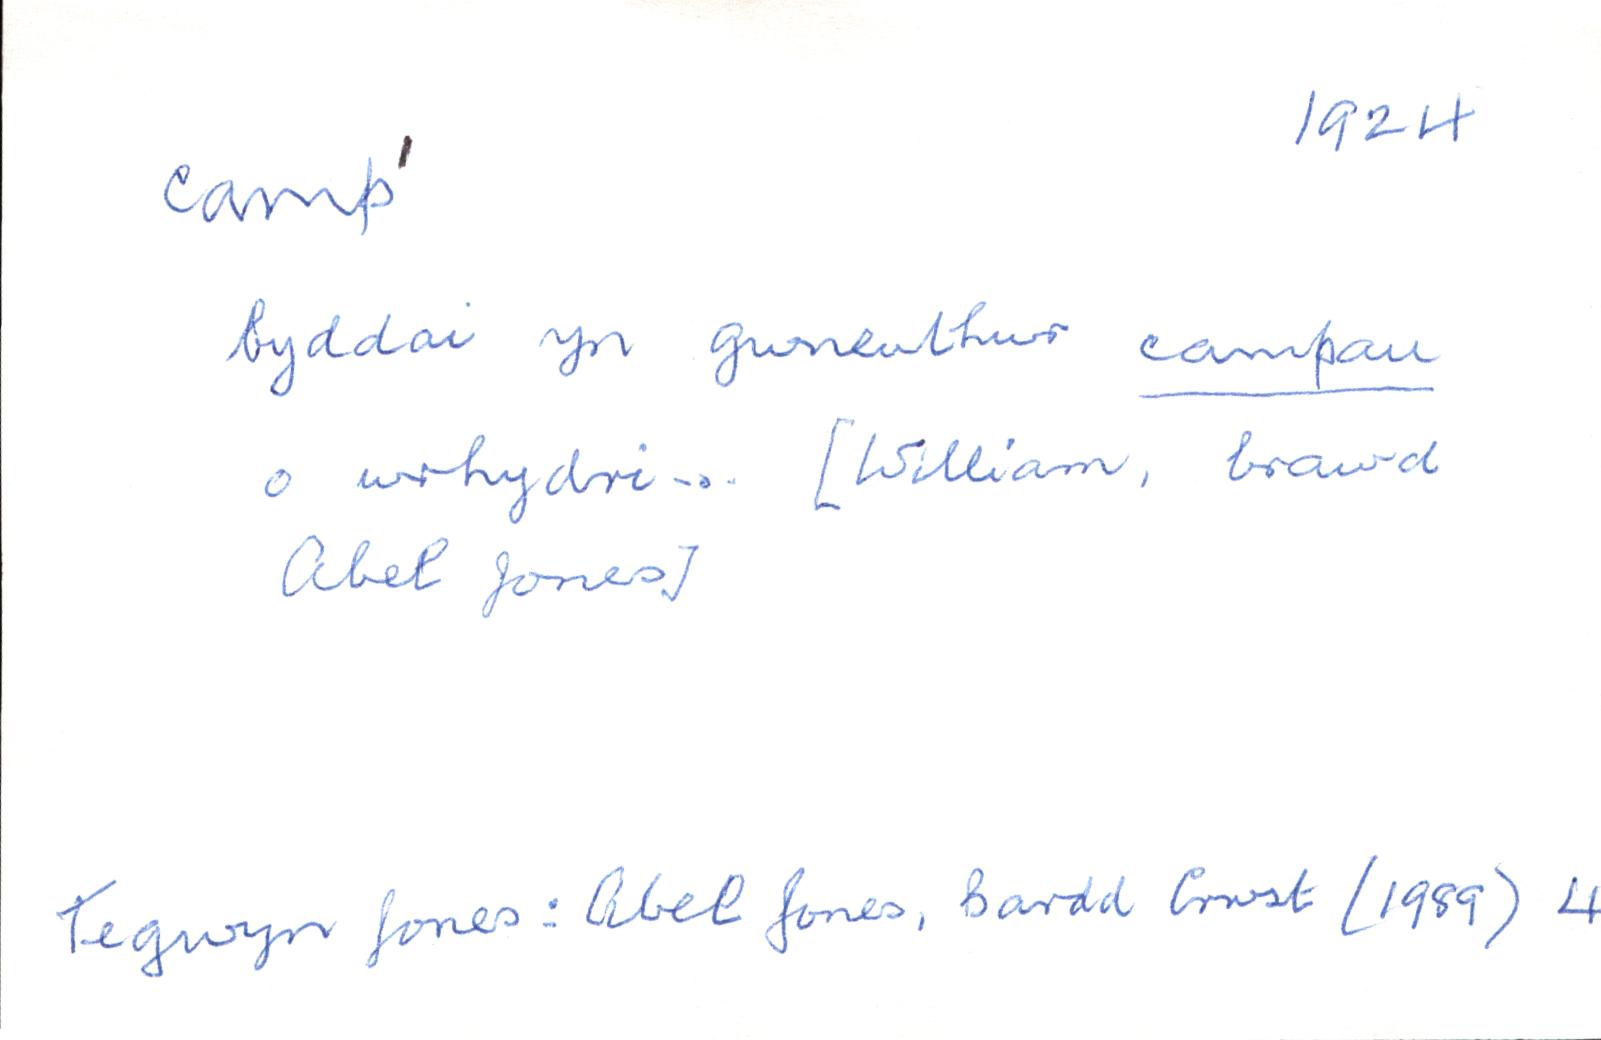 1924
camp'
byddai yn gwneuthur campau
o wrhydri... [William, brawd
Abel Jones]
Tegwyn Jones: Abel Jones, Bardd Crwst (1989) 4